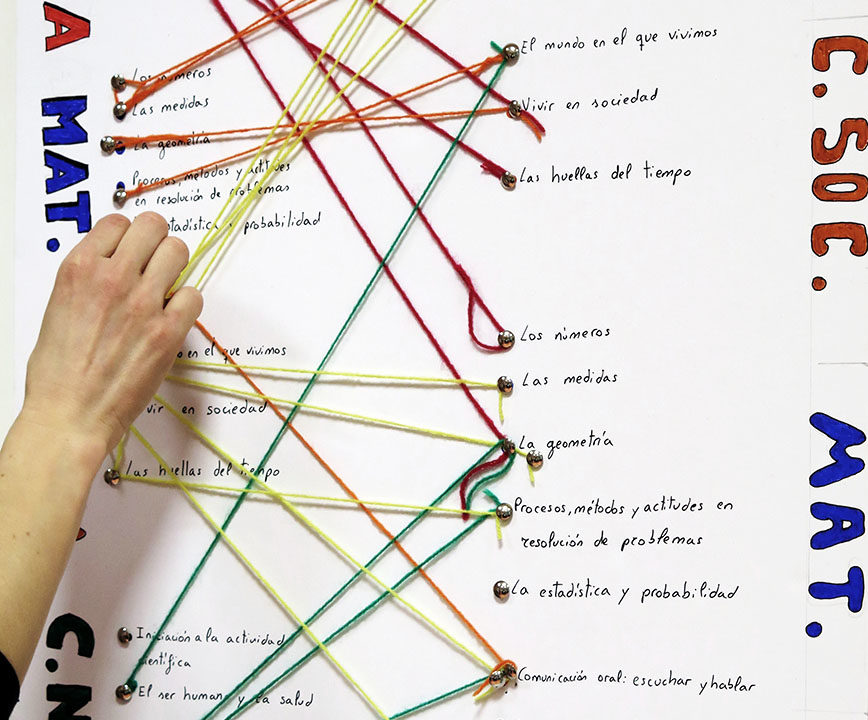 A
MAT.
Los números
Las medidas
La geometría
Procesos, métodos y actitudes
en resolución de problemas
estadística y probabilidad
o en el que vivimos
vir en sociedad
Las huellas del tiempo
C.N
Iniciación a la actividad
científica
El ser humano y la salud
El mundo en el que vivimos
Vivir en sociedad
Las huellas del tiempo
Los números
Las medidas
La geometría
Procesos, métodos y actitudes en
resolución de problemas
La estadística y probabilidad
Comunicación oral: escuchar y hablar
C.SOC.
MAT.